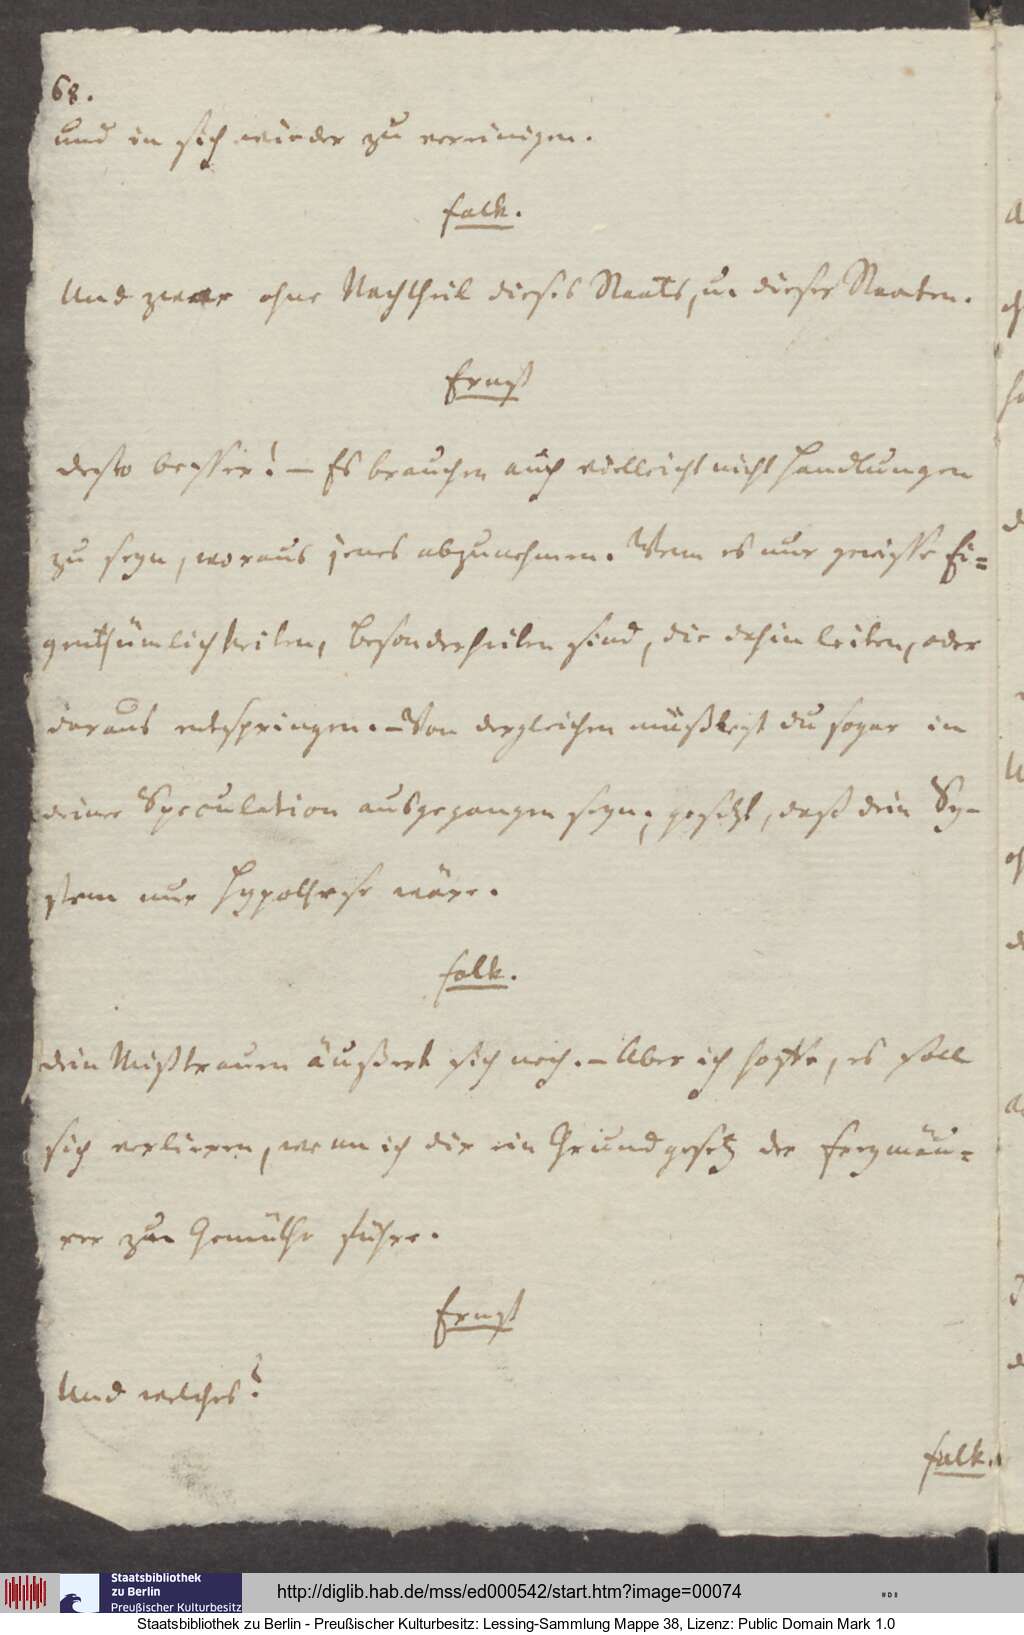 68.
und in sich wieder zu vereinigen.
Falk.
Und zwar ohne Nachtheil dieses Staats, u. dieser Staaten.
Ernst
desto besser! – Es brauchen auch vielleicht nicht Handlungen
zu seyn, woraus jenes abzunehmen. Wenn es nur gewisse Ei=
genthümlichkeiten, Besonderheiten sind, die dahin leiten, oder
daraus entspringen. – Von dergleichen müßtest du sogar in
deiner Speculation ausgegangen seyn; gesetzt, daß dein Sy-
stem nur Hypothese wäre.
Falk.
dein Mißtrauen äußert sich noch. – Aber ich hoffe, es soll
sich verlieren, wenn ich dir ein Grundgesetz der Freymäu=
rer zu Gemüthe führe.
Ernst
Und welches?
Falk.
Staatsbibliothek
zu Berlin
Preußischer Kulturbesitz
http://diglib.hab.de/mss/ed000542/start.htm?image=00074
Staatsbibliothek zu Berlin - Preußischer Kulturbesitz: Lessing-Sammlung Mappe 38, Lizenz: Public Domain Mark 1.0